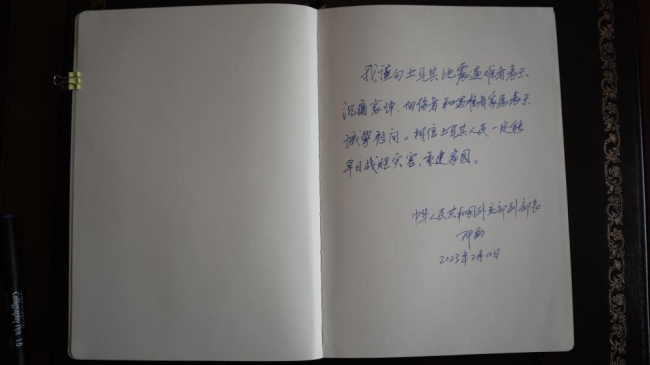 我谨向土耳其地震遇难者表示
沉痛哀悼，向伤者和遇难者家属表示
诚挚慰问。相信土耳其人民一定能
早日战胜灾害，重建家园。
中华人民共和国外交部副部长
邓励
2023年2月10日
Calligraphy Pen 1.0